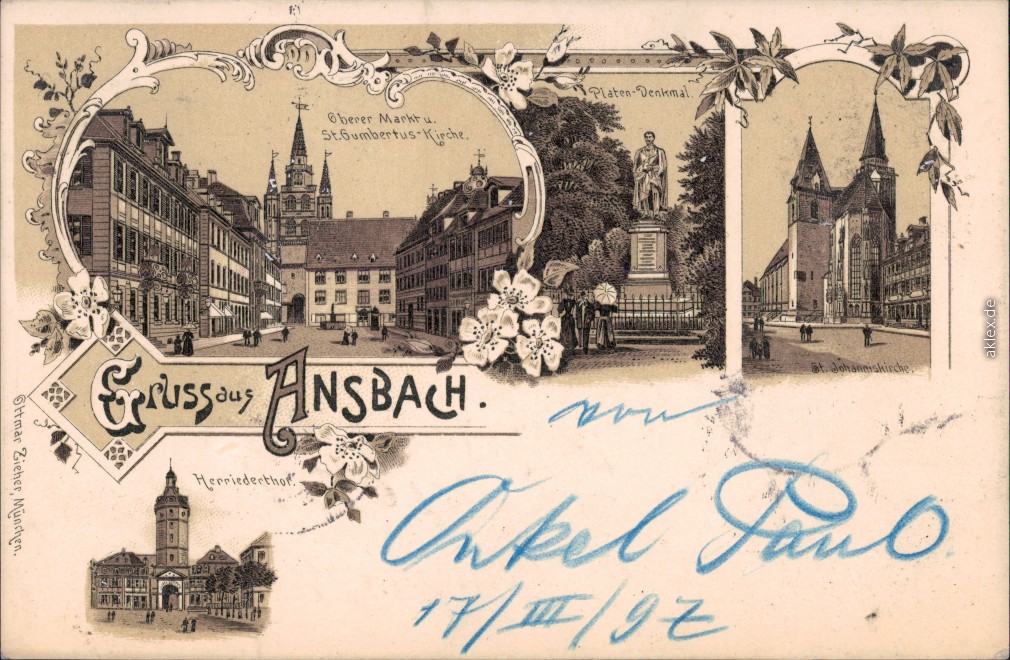 Oberer Markt u.
St. Gumbertus-Kirche.
Platen-Denkmal.
St. Johanniskirche.
Gruss aus Ansbach.
Herriederthor.
Ottmar Zieher, München.
von
Onkel Paul
17/III/97
aklex.de